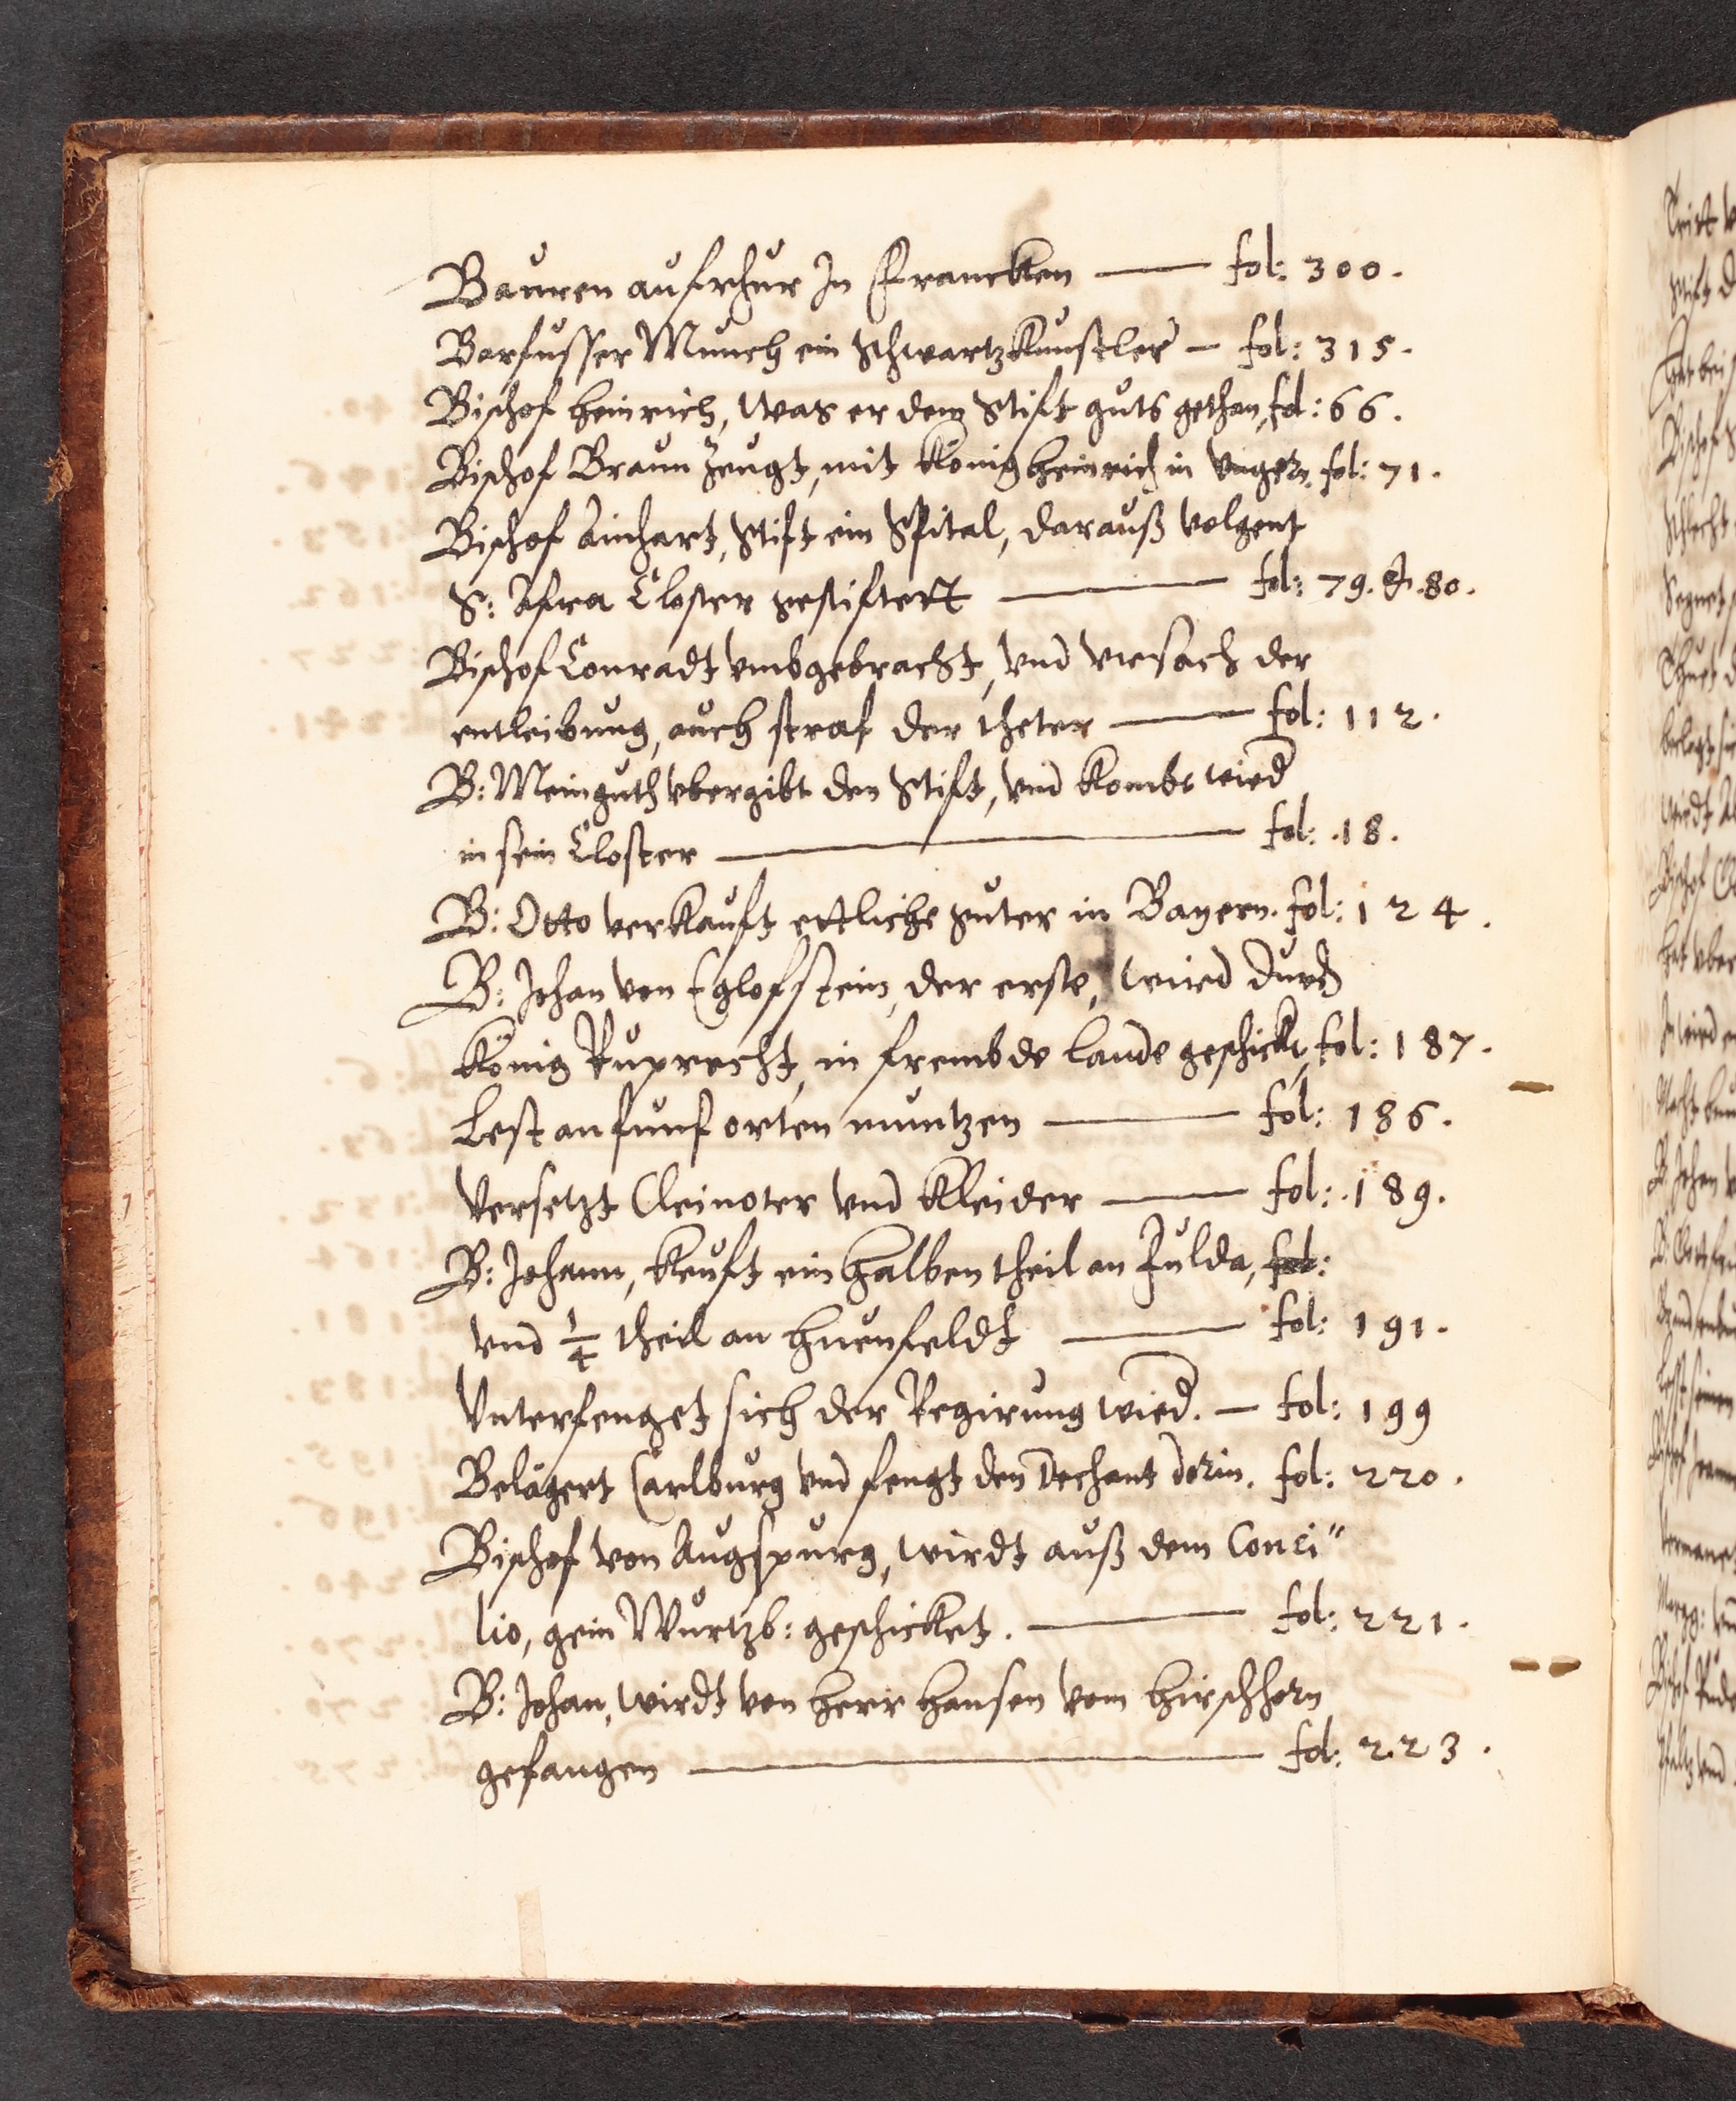 Bauren aufrhur In Francken — fol: 300.
Barfusser Munch ein Schwartzkunstler — fol: 315.
Bischof Heinrich, was er dem Stift guts gethan, fol: 66.
Bischof Braun zeugt, mit König Heinrich in Ungern. fol: 71.
Bischof Ainhart, Stift ein Spital, darauß volgent
S: Afra Closter gestiftett — fol: 79. et. 80.
Bischof Conradt umbgebracht, und ursach der
entleibung, auch straf der theter — fol: 112.
B: Meinguth ubergibt den Stift, und kombt wied
in sein Closter — fol: 18.
B: Otto verkauft ettliche guter in Bayern. fol: 124.
B: Johan von Eglofstein, der erste, wird durch
König Ruprecht, in frembde lande geschickt, fol: 187.
Lest an funf orten muntzen — fol: 186.
Versetzt Cleinoter und Kleider — fol: 189.
B: Johann, keuft ein halben theil an Fulda, fol:
und 1/4 theil an Huenfeldt — fol: 191.
Unterfenget sich der Regirung wied. — fol: 199
Belägert Carlburg und fengt den Dechant dorin. fol: 220.
Bischof von Augspurg, wirdt auß dem Conci"
lio, gein Wurtzb: geschicket. — fol: 221.
B: Johan, wirdt von Herr Hansen vom Hirschhorn
gefangen — fol: 223.